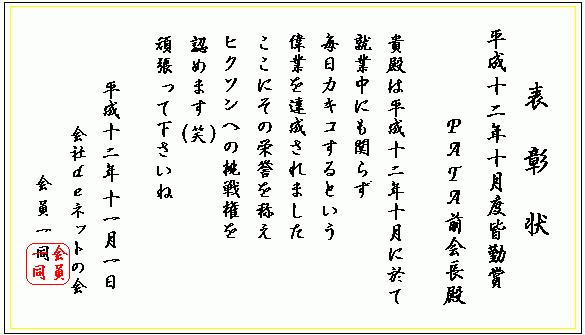 表彰状
平成十二年十月度皆勤賞
PATA前会長殿
貴殿は平成十二年十月に於て
就業中にも関らず
毎日カキコするという
偉業を達成されました
ここにその栄誉を称え
ヒクソンへの挑戦権を
認めます(笑)
頑張って下さいね
平成十二年十一月一日
会社deネットの会
会員一同
会員一同